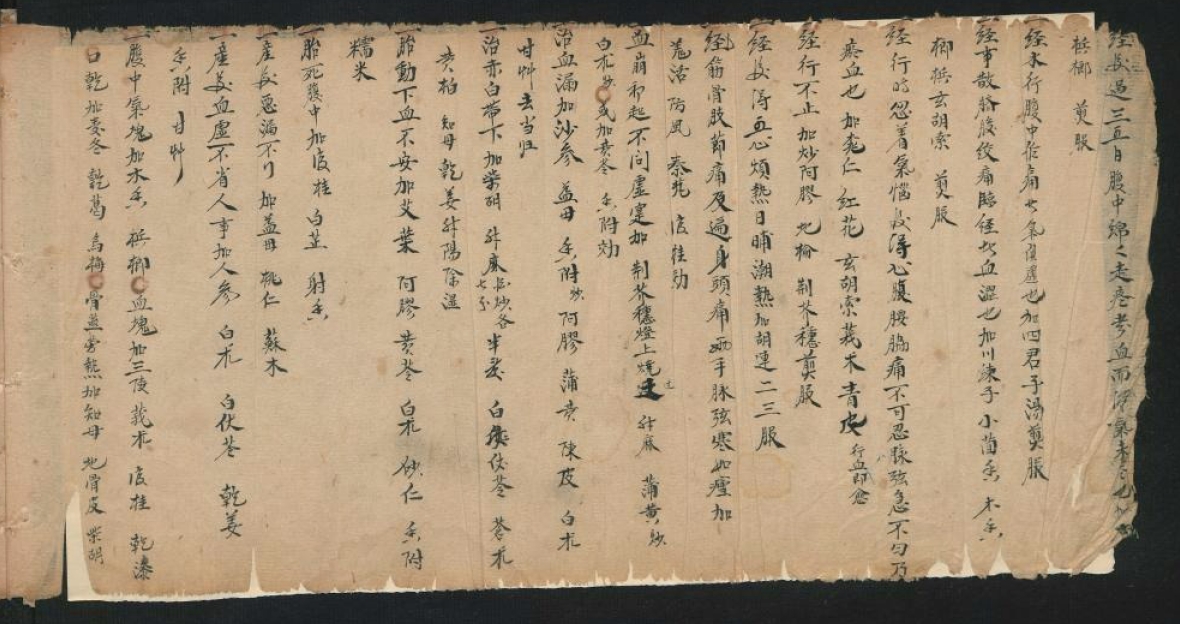 経後過三五日腹中綿々走疼者血而滞氣未尽也加
梹榔 煎服
一経水行腹中作痛者氣虚也加四君子湯煎服
一経事散臍腹絞痛臨経者血澀也加川練子 小茴香 木香
榔梹玄胡索 煎服
一経行時忽着氣惱後得心腹腰脇痛不可忍脉弦急不匀乃
瘀血也 加桃仁 紅花 玄胡索 莪朮 青皮 行血即愈
一経行不止 加炒阿膠 地榆 荆芥穗煎服
一経後得五心煩熱日晡潮熱加胡連二三服
一経筋骨肢節痛及遍身頭痛両手脉弦寒如瘧加
羗活 防風 秦艽 官桂効
一血崩初起不問虚寔加 荆芥穗燈上燒過 升麻 蒲黄炒
白朮炒或加黄芩 香附効
一治血漏加沙參 益母 香附炒 阿膠 蒲黄 陳皮 白朮
甘艸去当归
一治赤白帯下加柴胡 升麻各炒七分 半夏 白茯苓 蒼朮
黄柏 知母 乾姜升陽除湿
一胎動下血不安加艾葉 阿膠 黄芩 白朮 砂仁 香附
糯米
一胎死腹中加官桂 白芷 射香
一産後悪漏不行 加益母 桃仁 蘇木
一産後血虚不省人事加人參 白朮 白伏苓 乾姜
香附 甘艸
一腹中氣塊加木香 梹榔 血塊加三陵 莪朮 官桂 乾漆
口乾加麦冬 乾葛 烏梅 骨蒸労熱加知母 地骨皮 柴胡